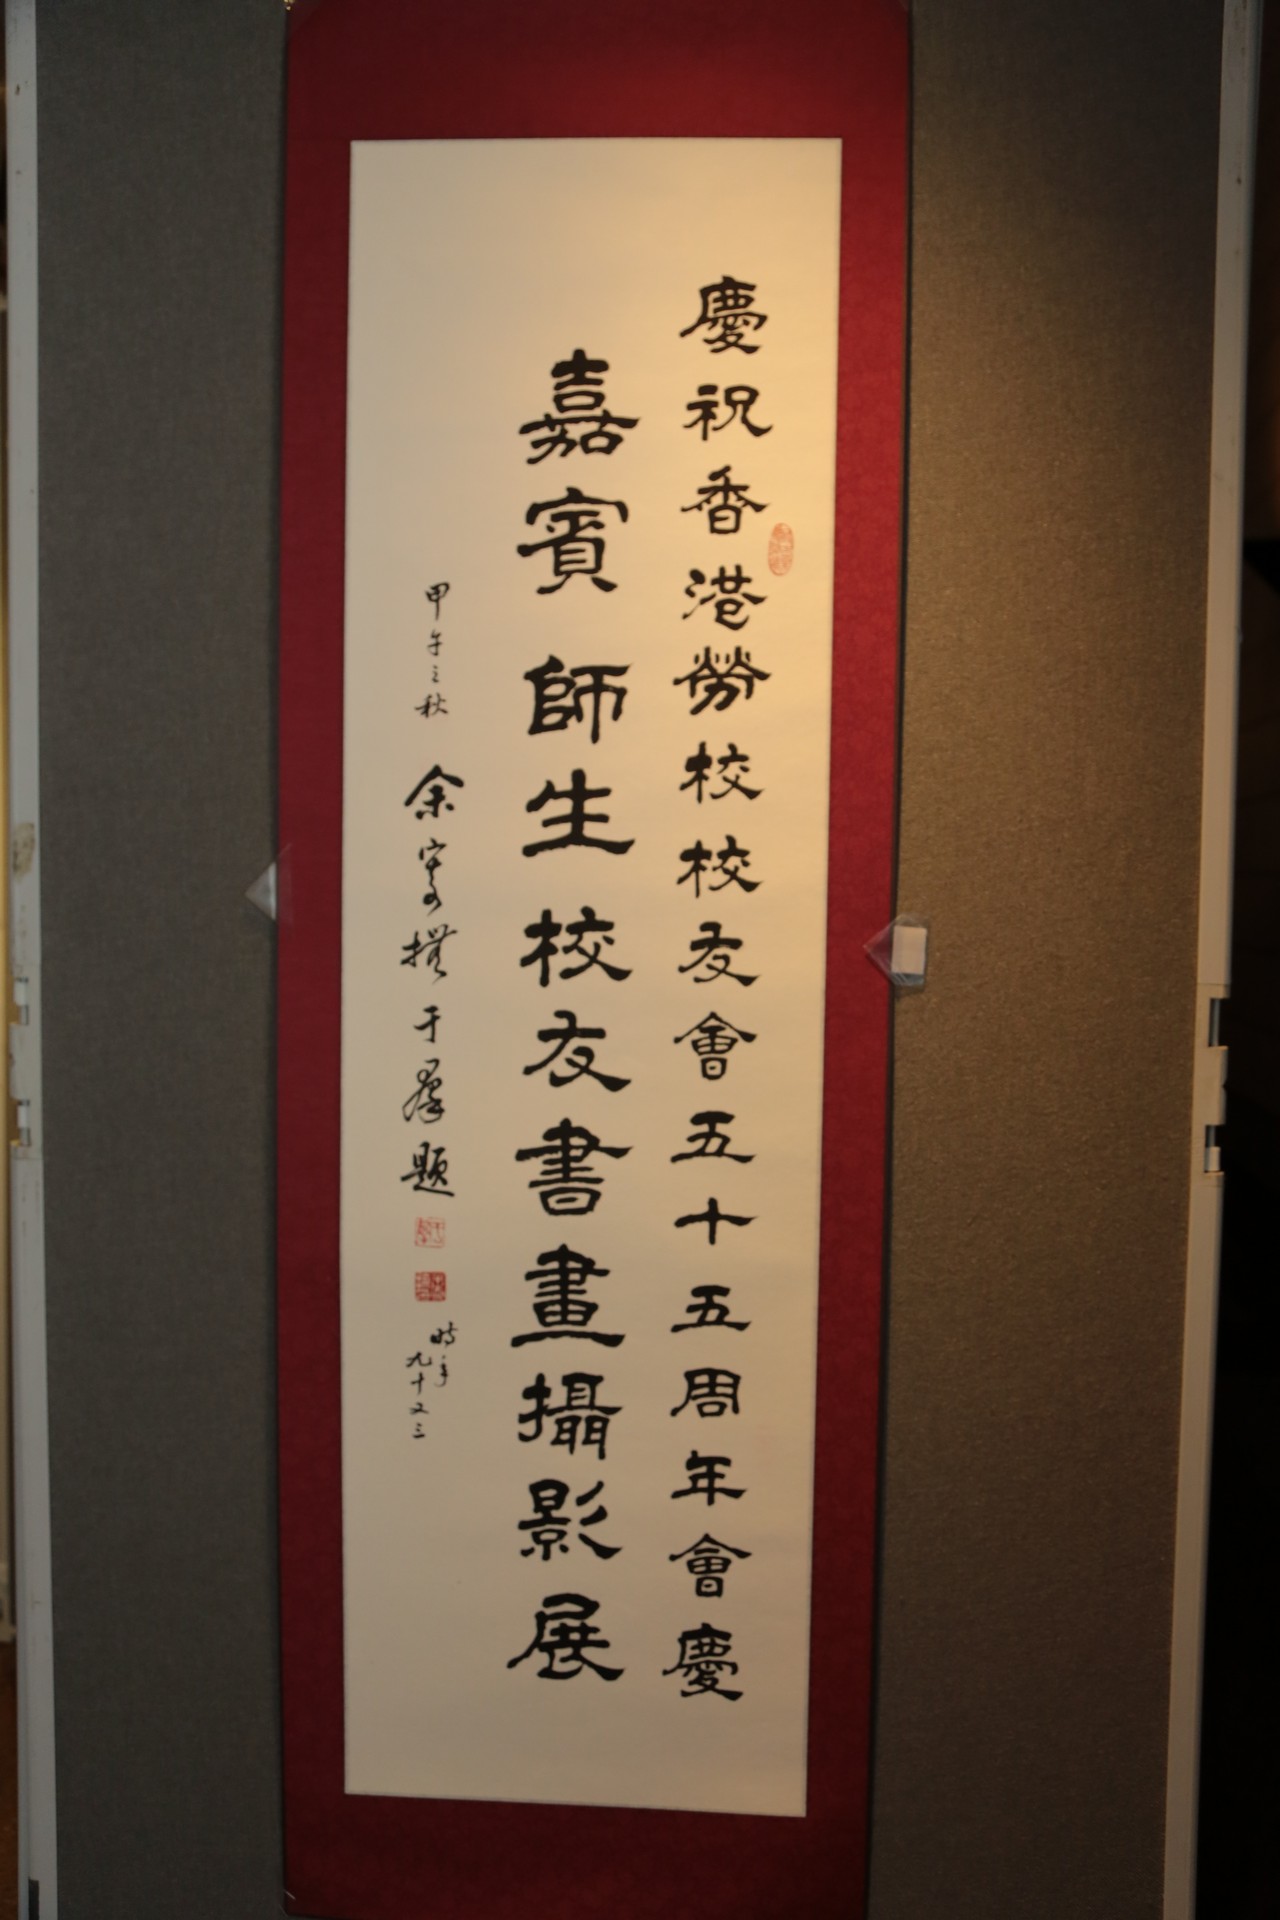 慶祝香港勞校校友會五十五周年會慶
嘉賓師生校友書畫攝影展
甲午之秋 余寄撫于群題
時年
九十又三